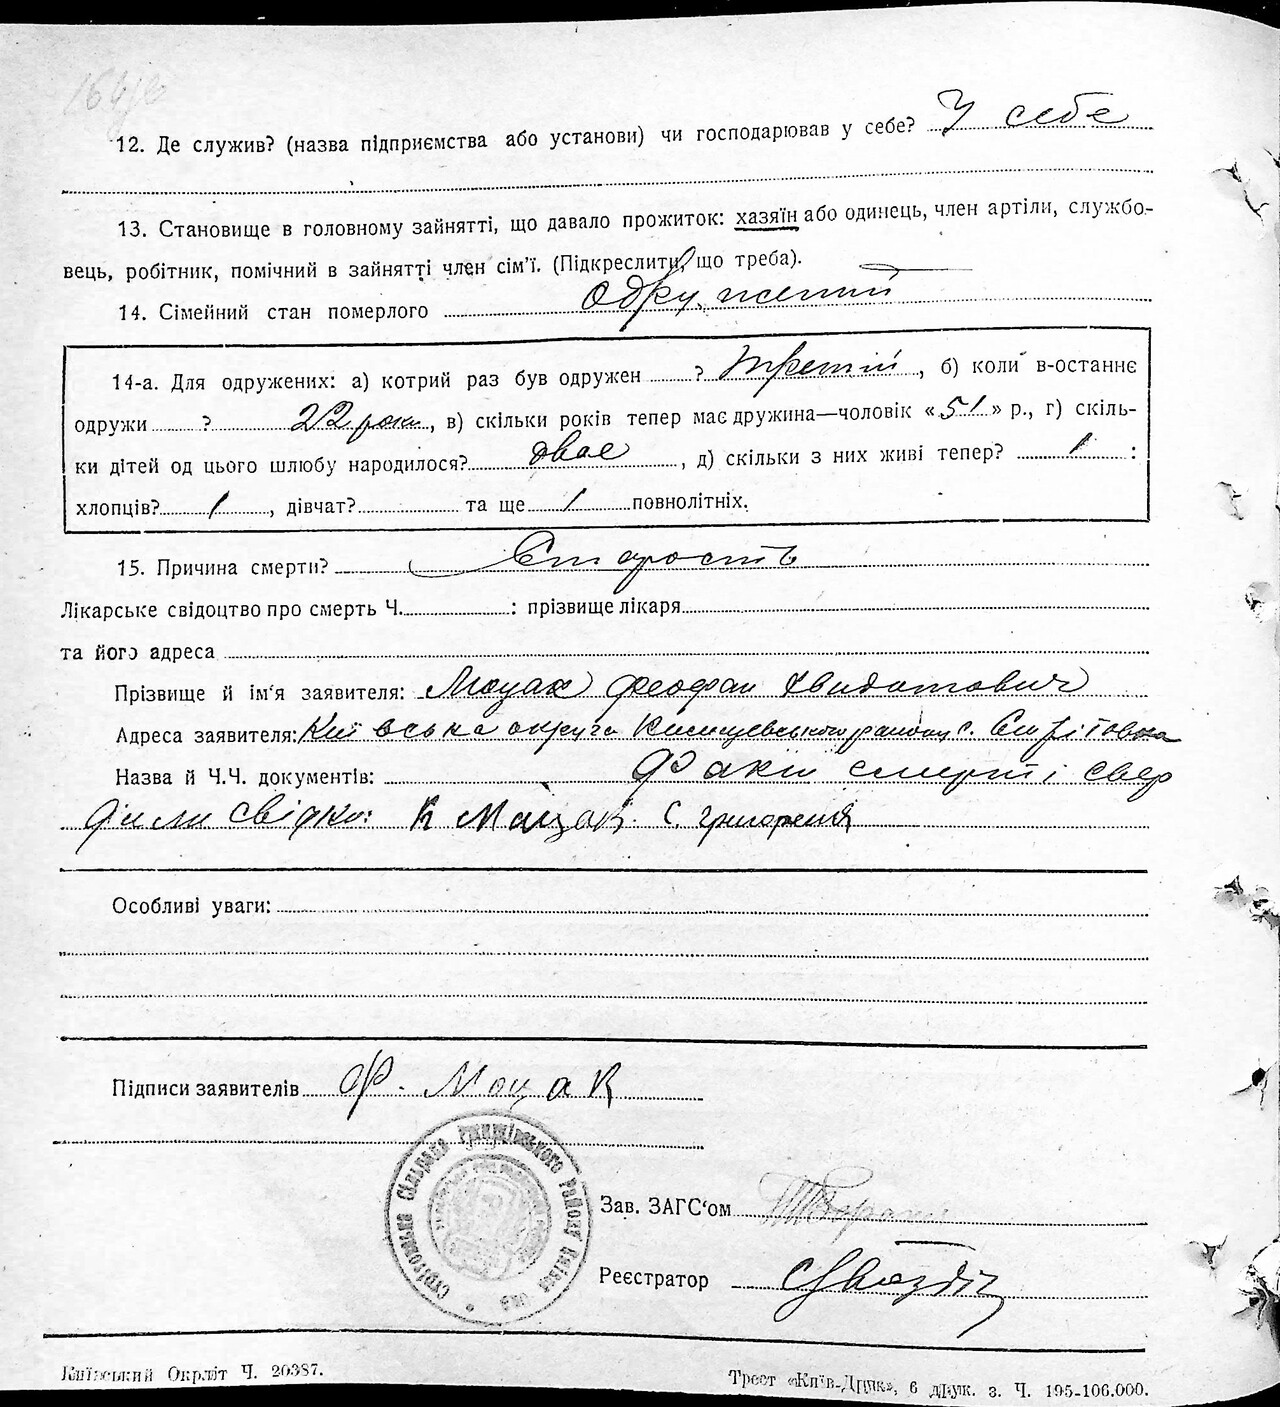 12. Де служив? (назва підприємства або установи) чи господарював у себе? У себе
13. Становище в головному зайнятті, що давало прожиток: хазяїн або одинець, член артіли, службо-
вець, робітник, помічний в зайнятті член сім’ї. (Підкреслити, що треба).
14. Сімейний стан померлого одружений
14-а. Для одружених: а) котрий раз був одружен ? третій, б) коли в-останнє
одружи ? 22 роки, в) скільки років тепер має дружина—чоловік «51» р., г) скіль-
ки дітей од цього шлюбу народилося? двоє, д) скільки з них живі тепер? 1 :
хлопців? 1, дівчат? та ще 1 повнолітніх.
15. Причина смерти? Старость
Лікарське свідоцтво про смерть Ч. : прізвище лікаря
та його адреса
Прізвище й ім‘я заявителя: Моцак Феофан
Адреса заявителя: Київська округа району с.
Назва й Ч.Ч. документів: Факт смерті ствер
дили свідки: К Моцак. С. Григоренко
Особливі уваги:
Підписи заявителів Ф. Моцак
Зав. ЗАГС‘ом
Реєстратор
Київський Окрліт Ч. 20387.
Трест «Київ-Друк», 6 друк. з. Ч. 195-106.000.